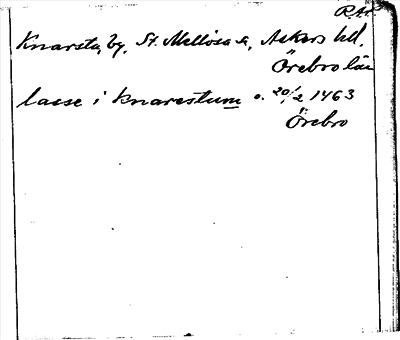 R.A.P.
Knarsta, by, St. Mellösa sn, Askers hd,
Örebro län
lasse i knarestum o. 20/2 1463
Örebro